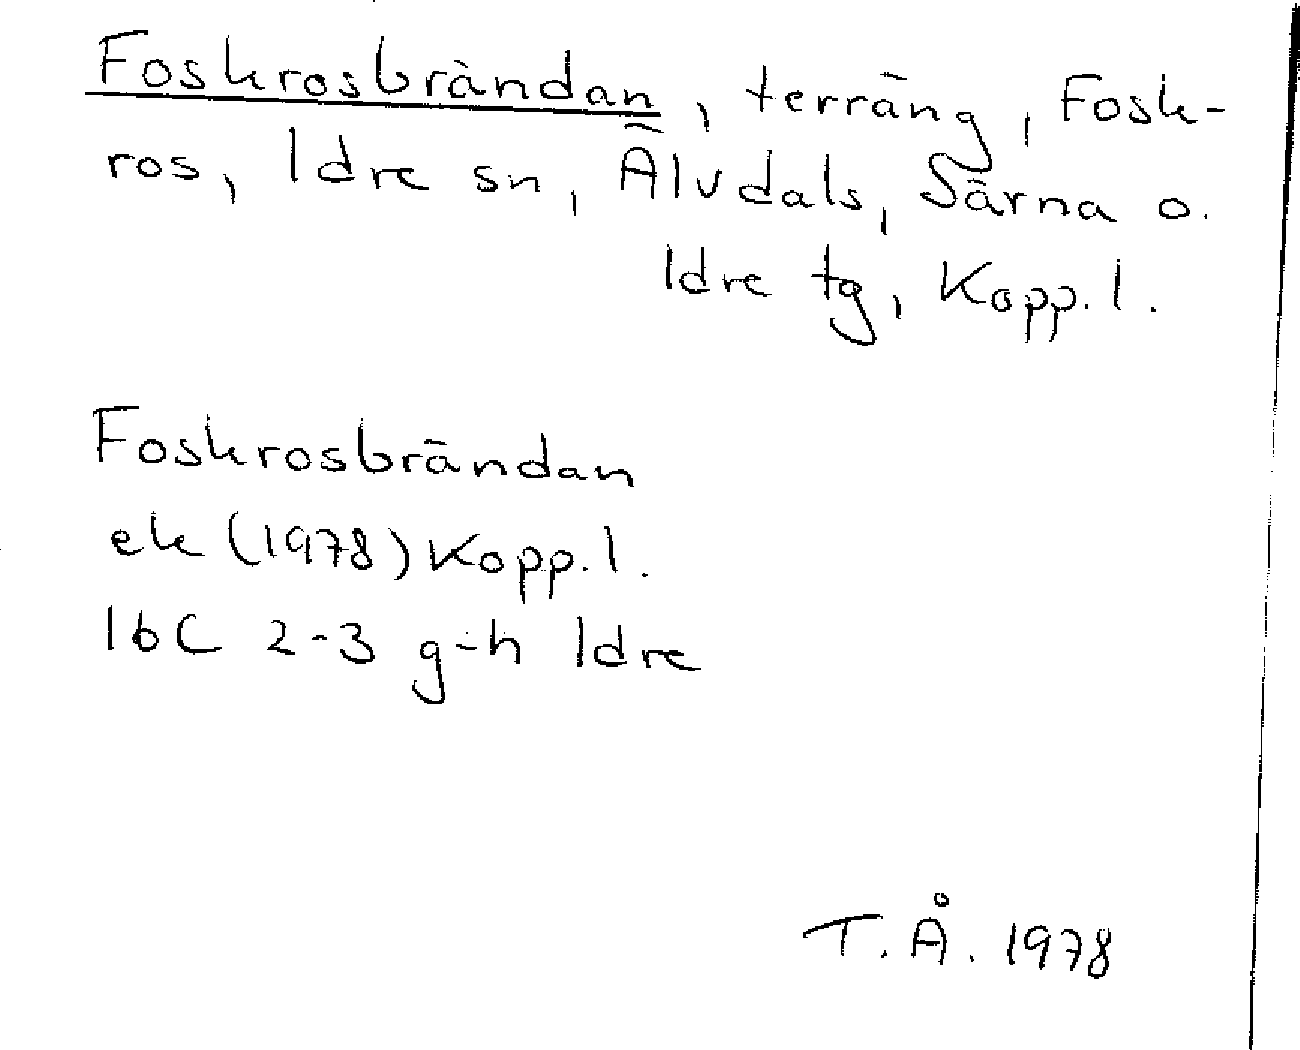 Foskrosbrändan, terräng, Fosk-
ros, Idre sn, Älvdals, Särna o.
Idre tg, Kopp. l.
Foskrosbrändan
ek (1978) Kopp. l.
16C 2-3 g-h Idre
T. Å. 1978